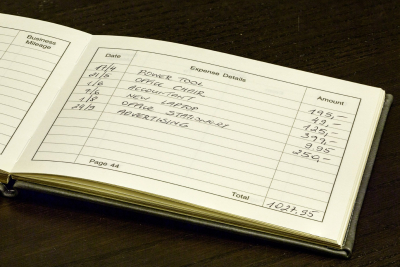 Business Mileage
Date Expense Details Amount
17/4 POWER TOOL 195,-
21/5 OFFICE CHAIR 49,-
1/6 ACCOUNTANT 125,-
7/6 NEW LAPTOP 399,-
1/8 OFFICE STATIONERY 9.95
29/9 ADVERTISING 250,-
Page 44
Total 1027.95